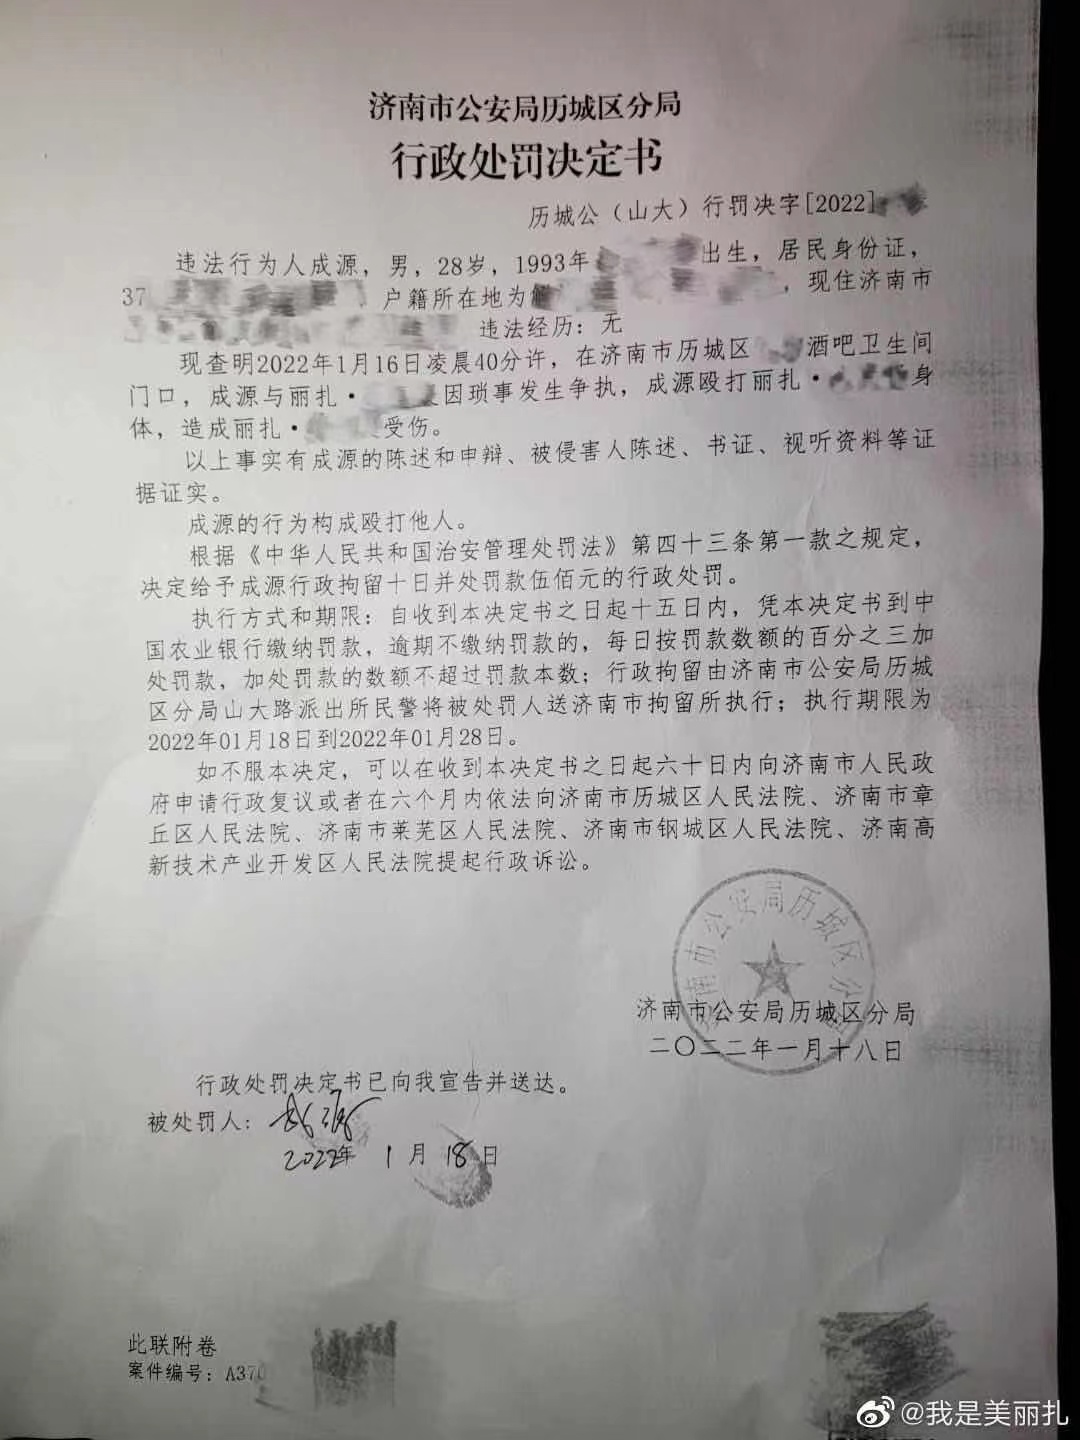 济南市公安局历城区分局
行政处罚决定书
历城公（山大）行罚决字[2022]
违法行为人成源，男，28岁，1993年 出生，居民身份证，
37 户籍所在地为 ，现住济南市
违法经历：无
现查明2022年1月16日凌晨40分许，在济南市历城区 酒吧卫生间
门口，成源与丽扎· 因琐事发生争执，成源殴打丽扎· 身
体，造成丽扎· 受伤。
以上事实有成源的陈述和申辩、被侵害人陈述、书证、视听资料等证
据证实。
成源的行为构成殴打他人。
根据《中华人民共和国治安管理处罚法》第四十三条第一款之规定，
决定给予成源行政拘留十日并处罚款伍佰元的行政处罚。
执行方式和期限：自收到本决定书之日起十五日内，凭本决定书到中
国农业银行缴纳罚款，逾期不缴纳罚款的，每日按罚款数额的百分之三加
处罚款，加处罚款的数额不超过罚款本数；行政拘留由济南市公安局历城
区分局山大路派出所民警将被处罚人送济南市拘留所执行；执行期限为
2022年01月18日到2022年01月28日。
如不服本决定，可以在收到本决定书之日起六十日内向济南市人民政
府申请行政复议或者在六个月内依法向济南市历城区人民法院、济南市章
丘区人民法院、济南市莱芜区人民法院、济南市钢城区人民法院、济南高
新技术产业开发区人民法院提起行政诉讼。
济南市公安局历城区分局
济南市公安局历城区分局
二〇二二年一月十八日
行政处罚决定书已向我宣告并送达。
被处罚人：成源
2022年 1月 18日
此联附卷
案件编号：A370
@我是美丽扎